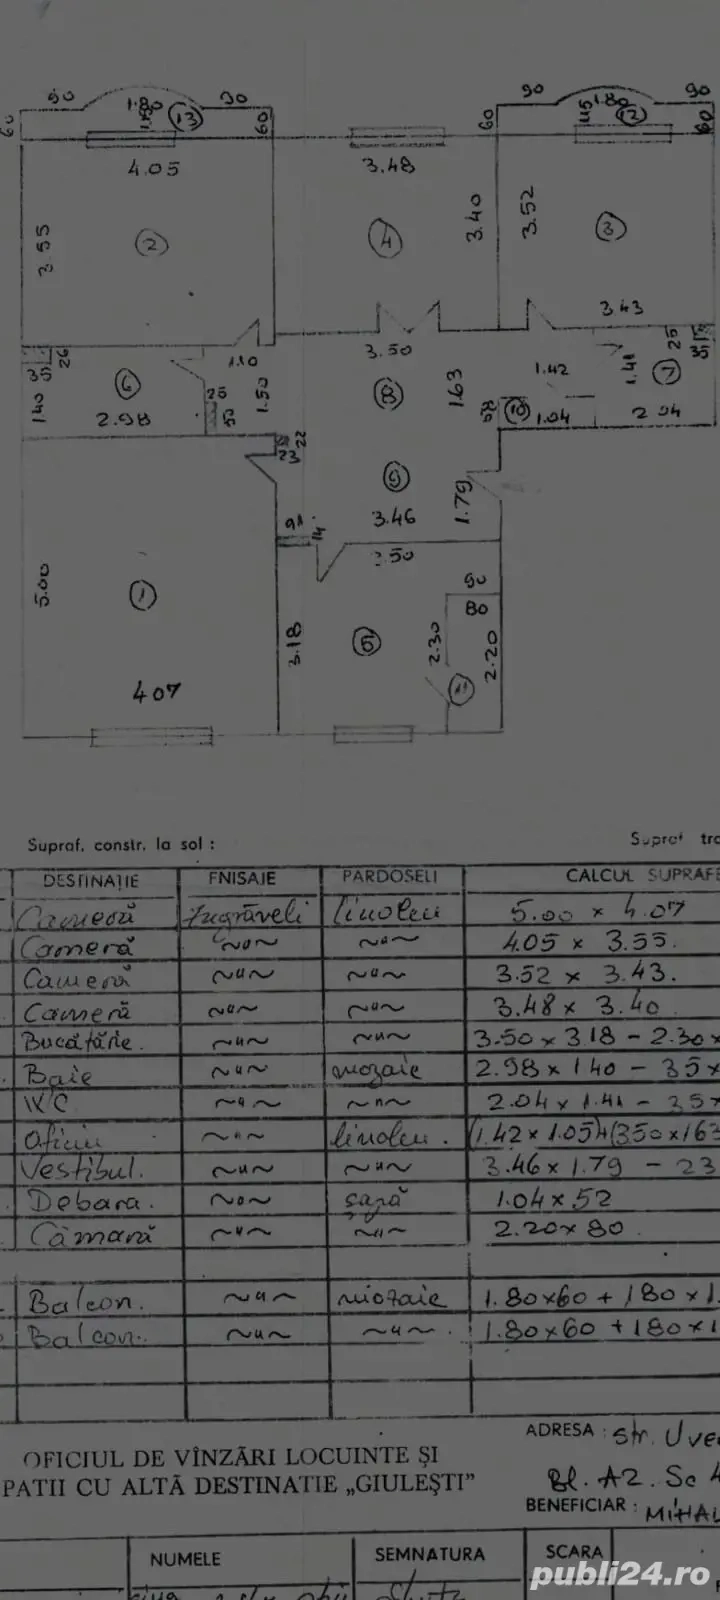 90 1.80 30 90 1.80 90
60 1.80 13 60 60 115 12 60
4.05 3.48
3.55 2 4 3.40 3.52 3
3.43
35 26 1.10 3.50 1.42 1.41 25 35
6 8 1.63 7
1.40 2.98 25 50 1.50 10 1.04 2.04
22
23
9
91 14 3.46 1.79
3.50
5.00 1 90
80
3.18 5 2.30 2.20
4.07 11
Supraf. constr. la sol :
DESTINAȚIE FNISAJE PARDOSELI CALCUL SUPRAFE
Cameră Zugrăveli linoleu 5.00 x 4.07
Cameră ~"~ ~"~ 4.05 x 3.55.
Cameră ~"~ ~"~ 3.52 x 3.43.
Cameră ~"~ ~"~ 3.48 x 3.40
Bucătărie. ~"~ ~"~ 3.50 x 3.18 - 2.30 x
Baie ~"~ mozaic 2.98 x 1 40 - 35 x
WC ~"~ ~"~ 2.04 x 1.41 - 35 x
Oficiu ~"~ linoleu. (1.42 x 1.05)+(350 x 163
Vestibul. ~"~ ~"~ 3.46 x 1.79 - 23
Debara. ~"~ șapă 1.04 x 52
Cămară ~"~ ~"~ 2.20 x 80
Balcon. ~"~ mozaic 1.80x60 + 180 x 1.
Balcon. ~"~ ~"~ . 1.80x60 + 180 x 1
ADRESA : str. Uve
OFICIUL DE VÎNZĂRI LOCUINTE ȘI
PATII CU ALTĂ DESTINATIE „GIULEȘTI”
Bl. A2. Sc 4
BENEFICIAR : MIHAL
NUMELE SEMNATURA SCARA
publi24.ro